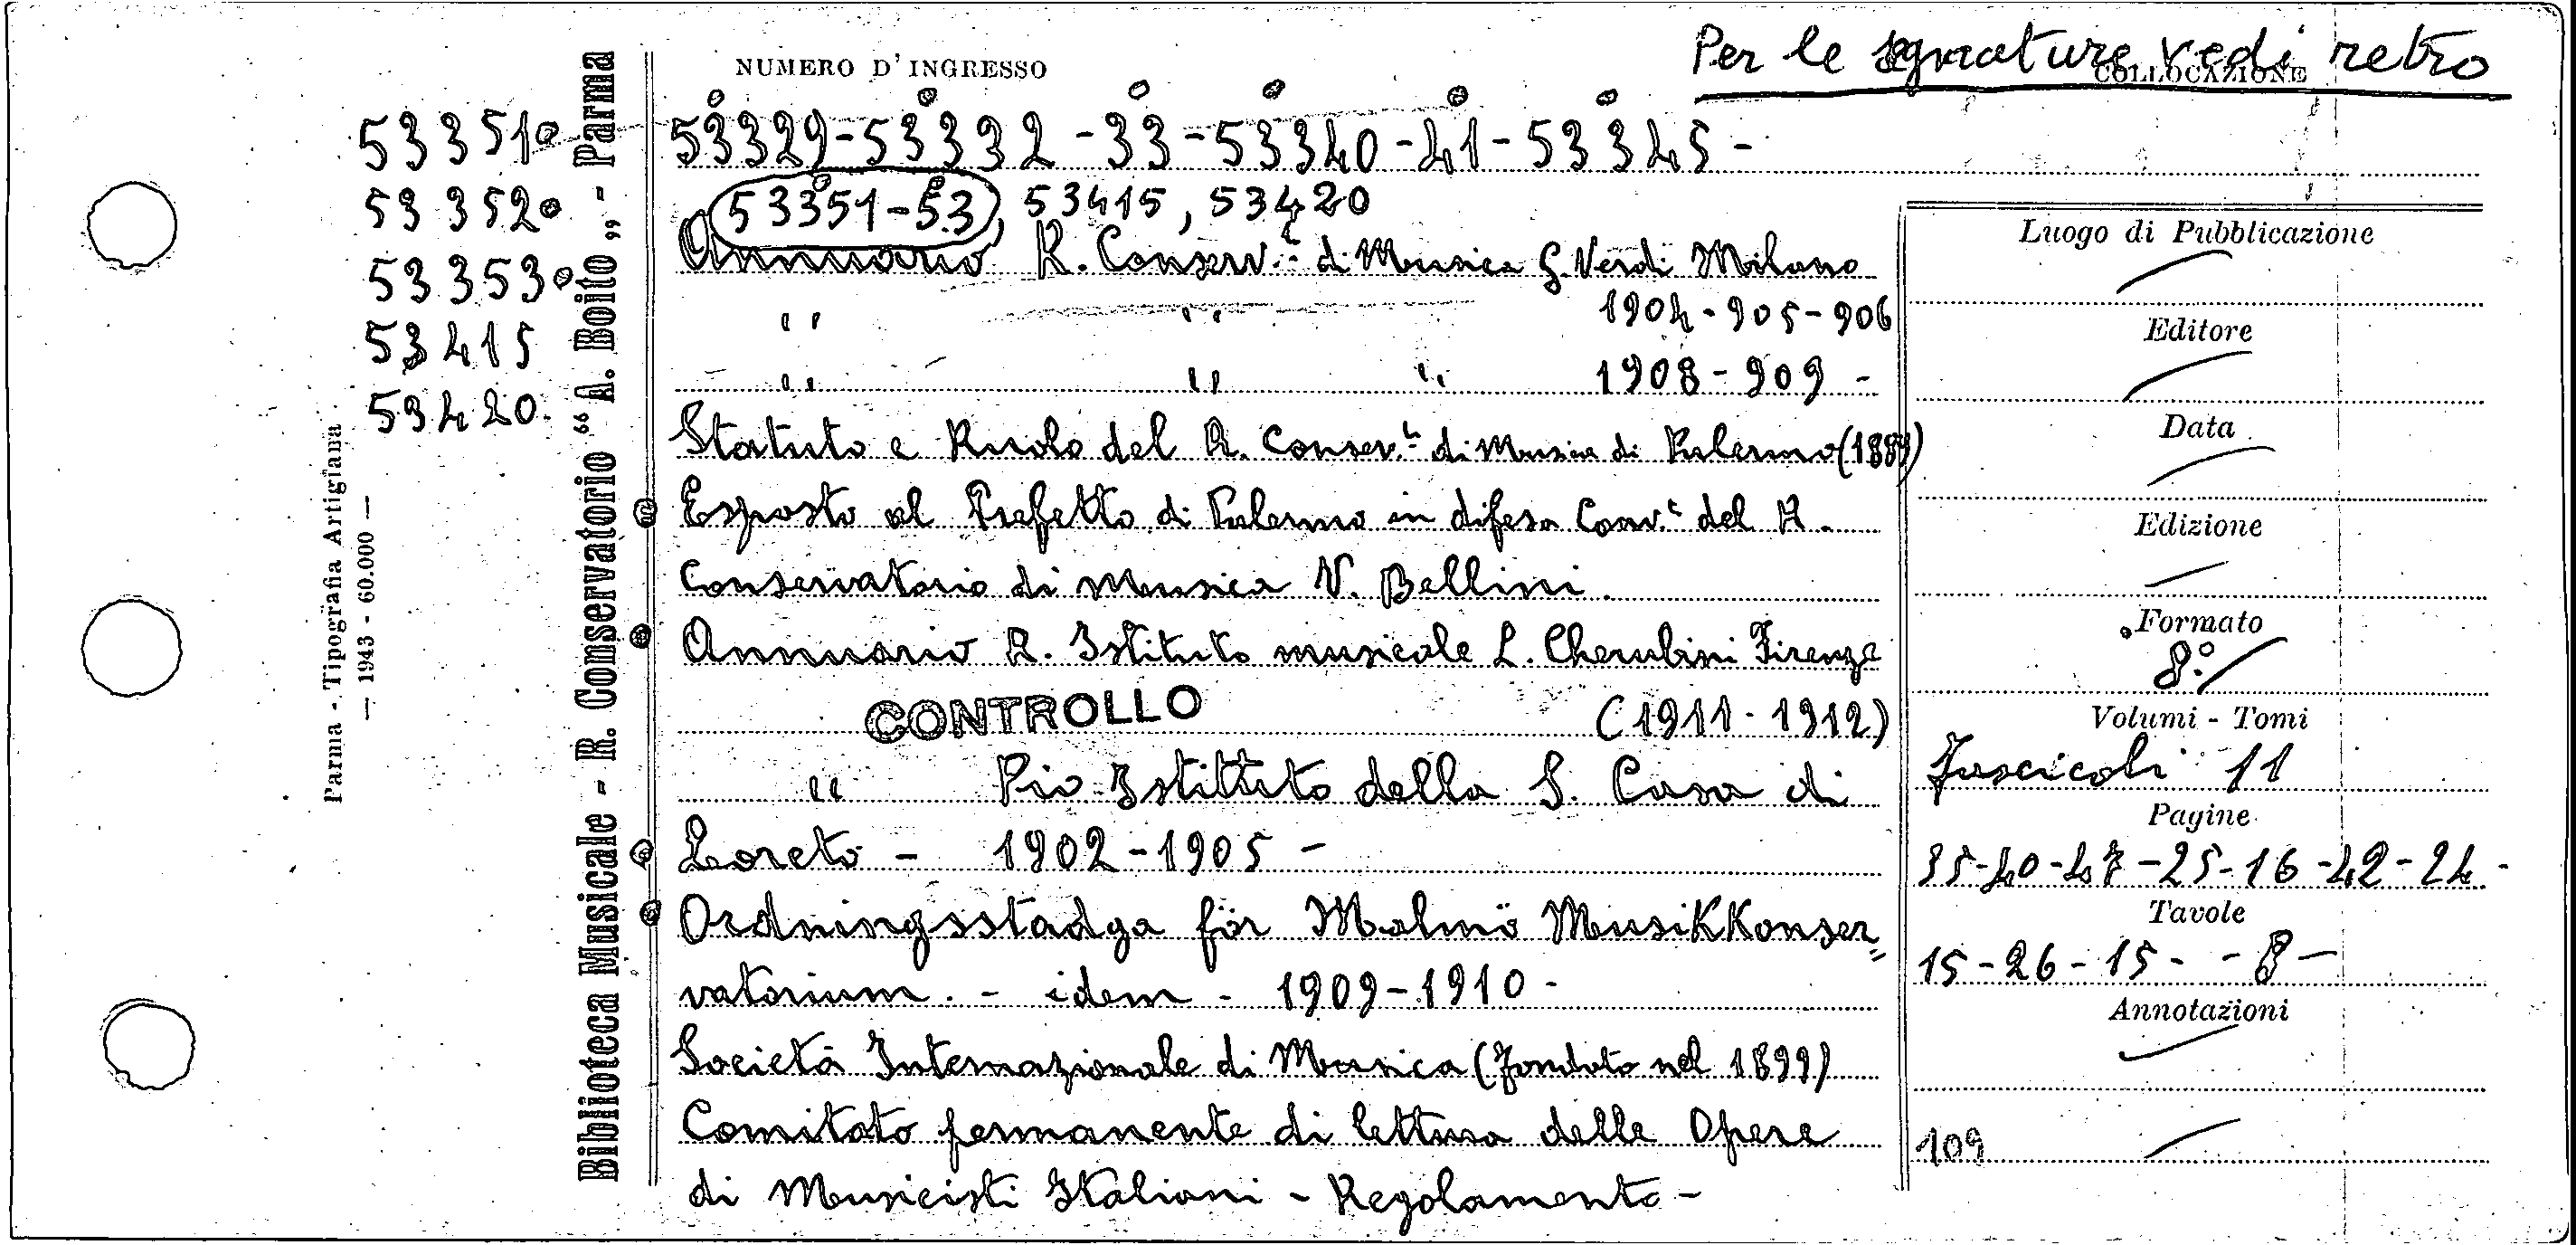 Per le segnature vedi retro
NUMERO D'INGRESSO
COLLOCAZIONE
53329-53332-33-53340-41-53345-
53351-53, 53415, 53420
53351
53352
53353
53415
53420
Parma - Tipografia Artigiana
— 1943 - 60.000 —
Biblioteca Musicale - R. Conservatorio "A. Boito„ - Parma
Annuario R. Conserv. di Musica G. Verdi Milano
" " 1904-905-906
" " " 1908-909-
Statuto e Ruolo del R. Conserv. di Musica di Palermo
Esposto al Prefetto di Palermo in difesa del R.
Conservatorio di Musica V. Bellini.
Annuario R. Istituto musicale L. Cherubini Firenze
CONTROLLO (1911-1912)
" Pio Istituto della S. Casa di
Loreto - 1902-1905 -
Ordningsstadga för Malmö MusiKKonser=
vatorium. - idem - 1909-1910 -
Società Internazionale di Musica (fondata nel 1899)
Comitato permanente di lettura delle Opere
di Musicisti Italiani - Regolamento -
Luogo di Pubblicazione
Editore
Data
Edizione
Formato
8º
Volumi - Tomi
Fascicoli 11
Pagine
35-40-47-25-16-42-24-
Tavole
15-26-15- -8-
Annotazioni
109